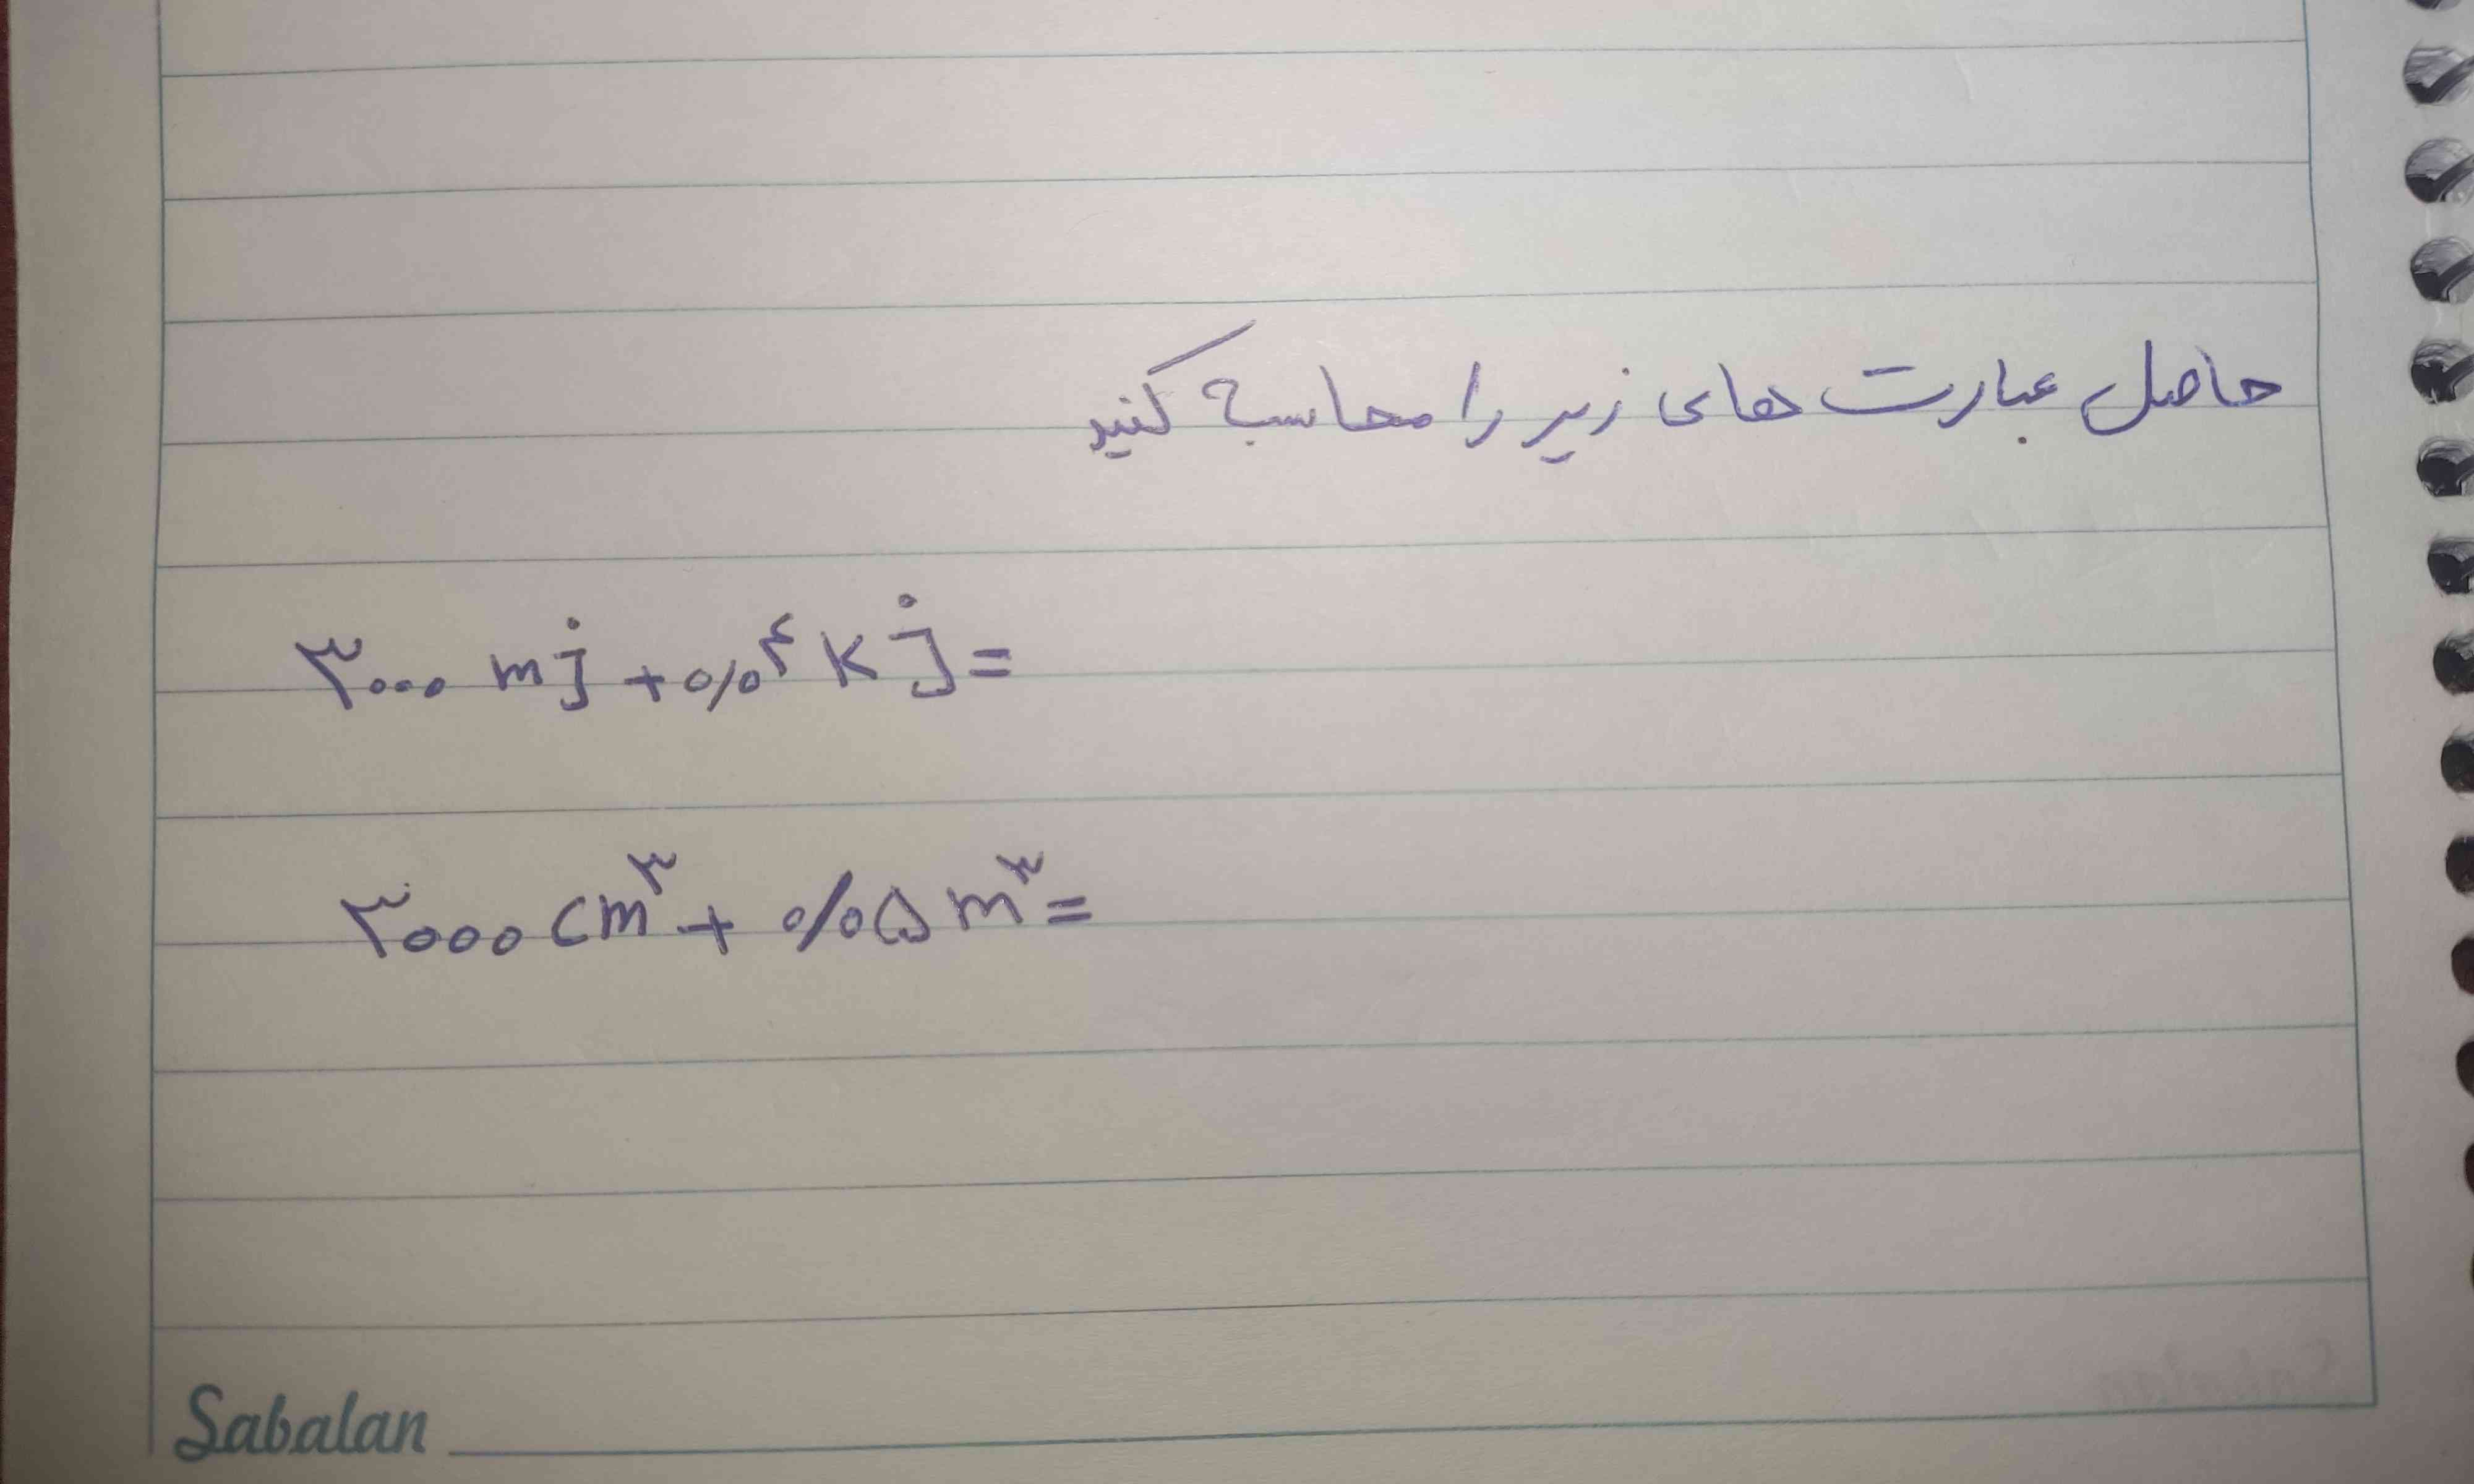 حاصل عبارت های زیر را محاسبه کنید
۳۰۰۰ mj + ۰/۰۴ kj =
۳۰۰۰ cm³ + ۰/۰۵ m³ =
Sabalan